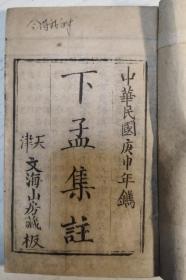 中華民國庚申年鐫
下孟集註
天津
文海山房藏板